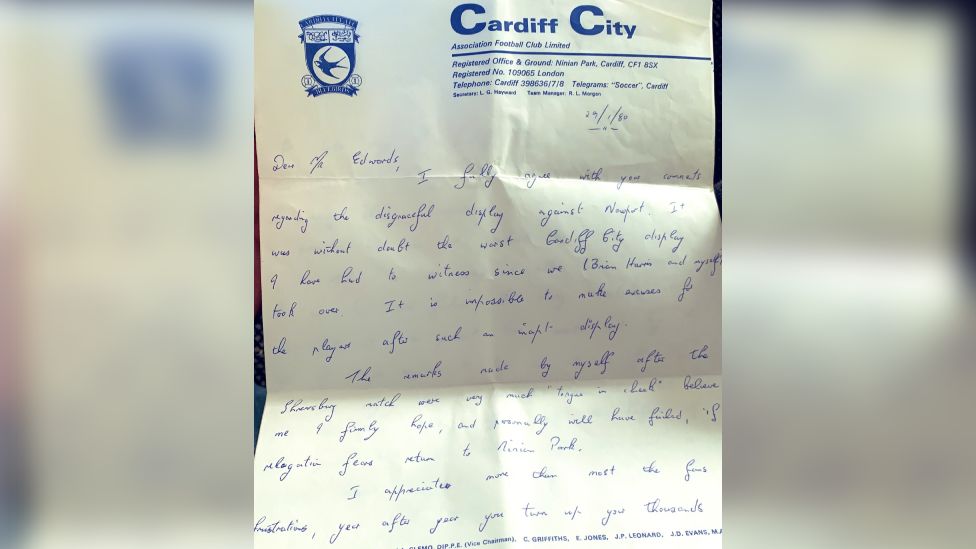 CARDIFF CITY A.F.C.
BLUEBIRDS
Cardiff City
Association Football Club Limited
Registered Office & Ground: Ninian Park, Cardiff, CF1 8SX
Registered No. 109065 London
Telephone: Cardiff 398636/7/8 Telegrams: "Soccer", Cardiff
Secretary: L. G. Hayward Team Manager: R. L. Morgan
29/1/80
Dear Mr Edwards,
I fully agree with your comments
regarding the disgraceful display against Newport. It
was without doubt the worst Cardiff City display
I have had to witness since we (Brian Harris and myself)
took over. It is impossible to make excuses for
the players after such an inapt display.
The remarks made by myself after the
Shrewsbury match were very much "tongue in cheek" believe
me I firmly hope, and personally will have failed, if
relegation fears return to Ninian Park.
I appreciate more than most the fans
frustrations, year after year you turn up your thousands
CLEMO, DIP.P.E. (Vice Chairman), C. GRIFFITHS, E. JONES, J.P. LEONARD, J.D. EVANS,